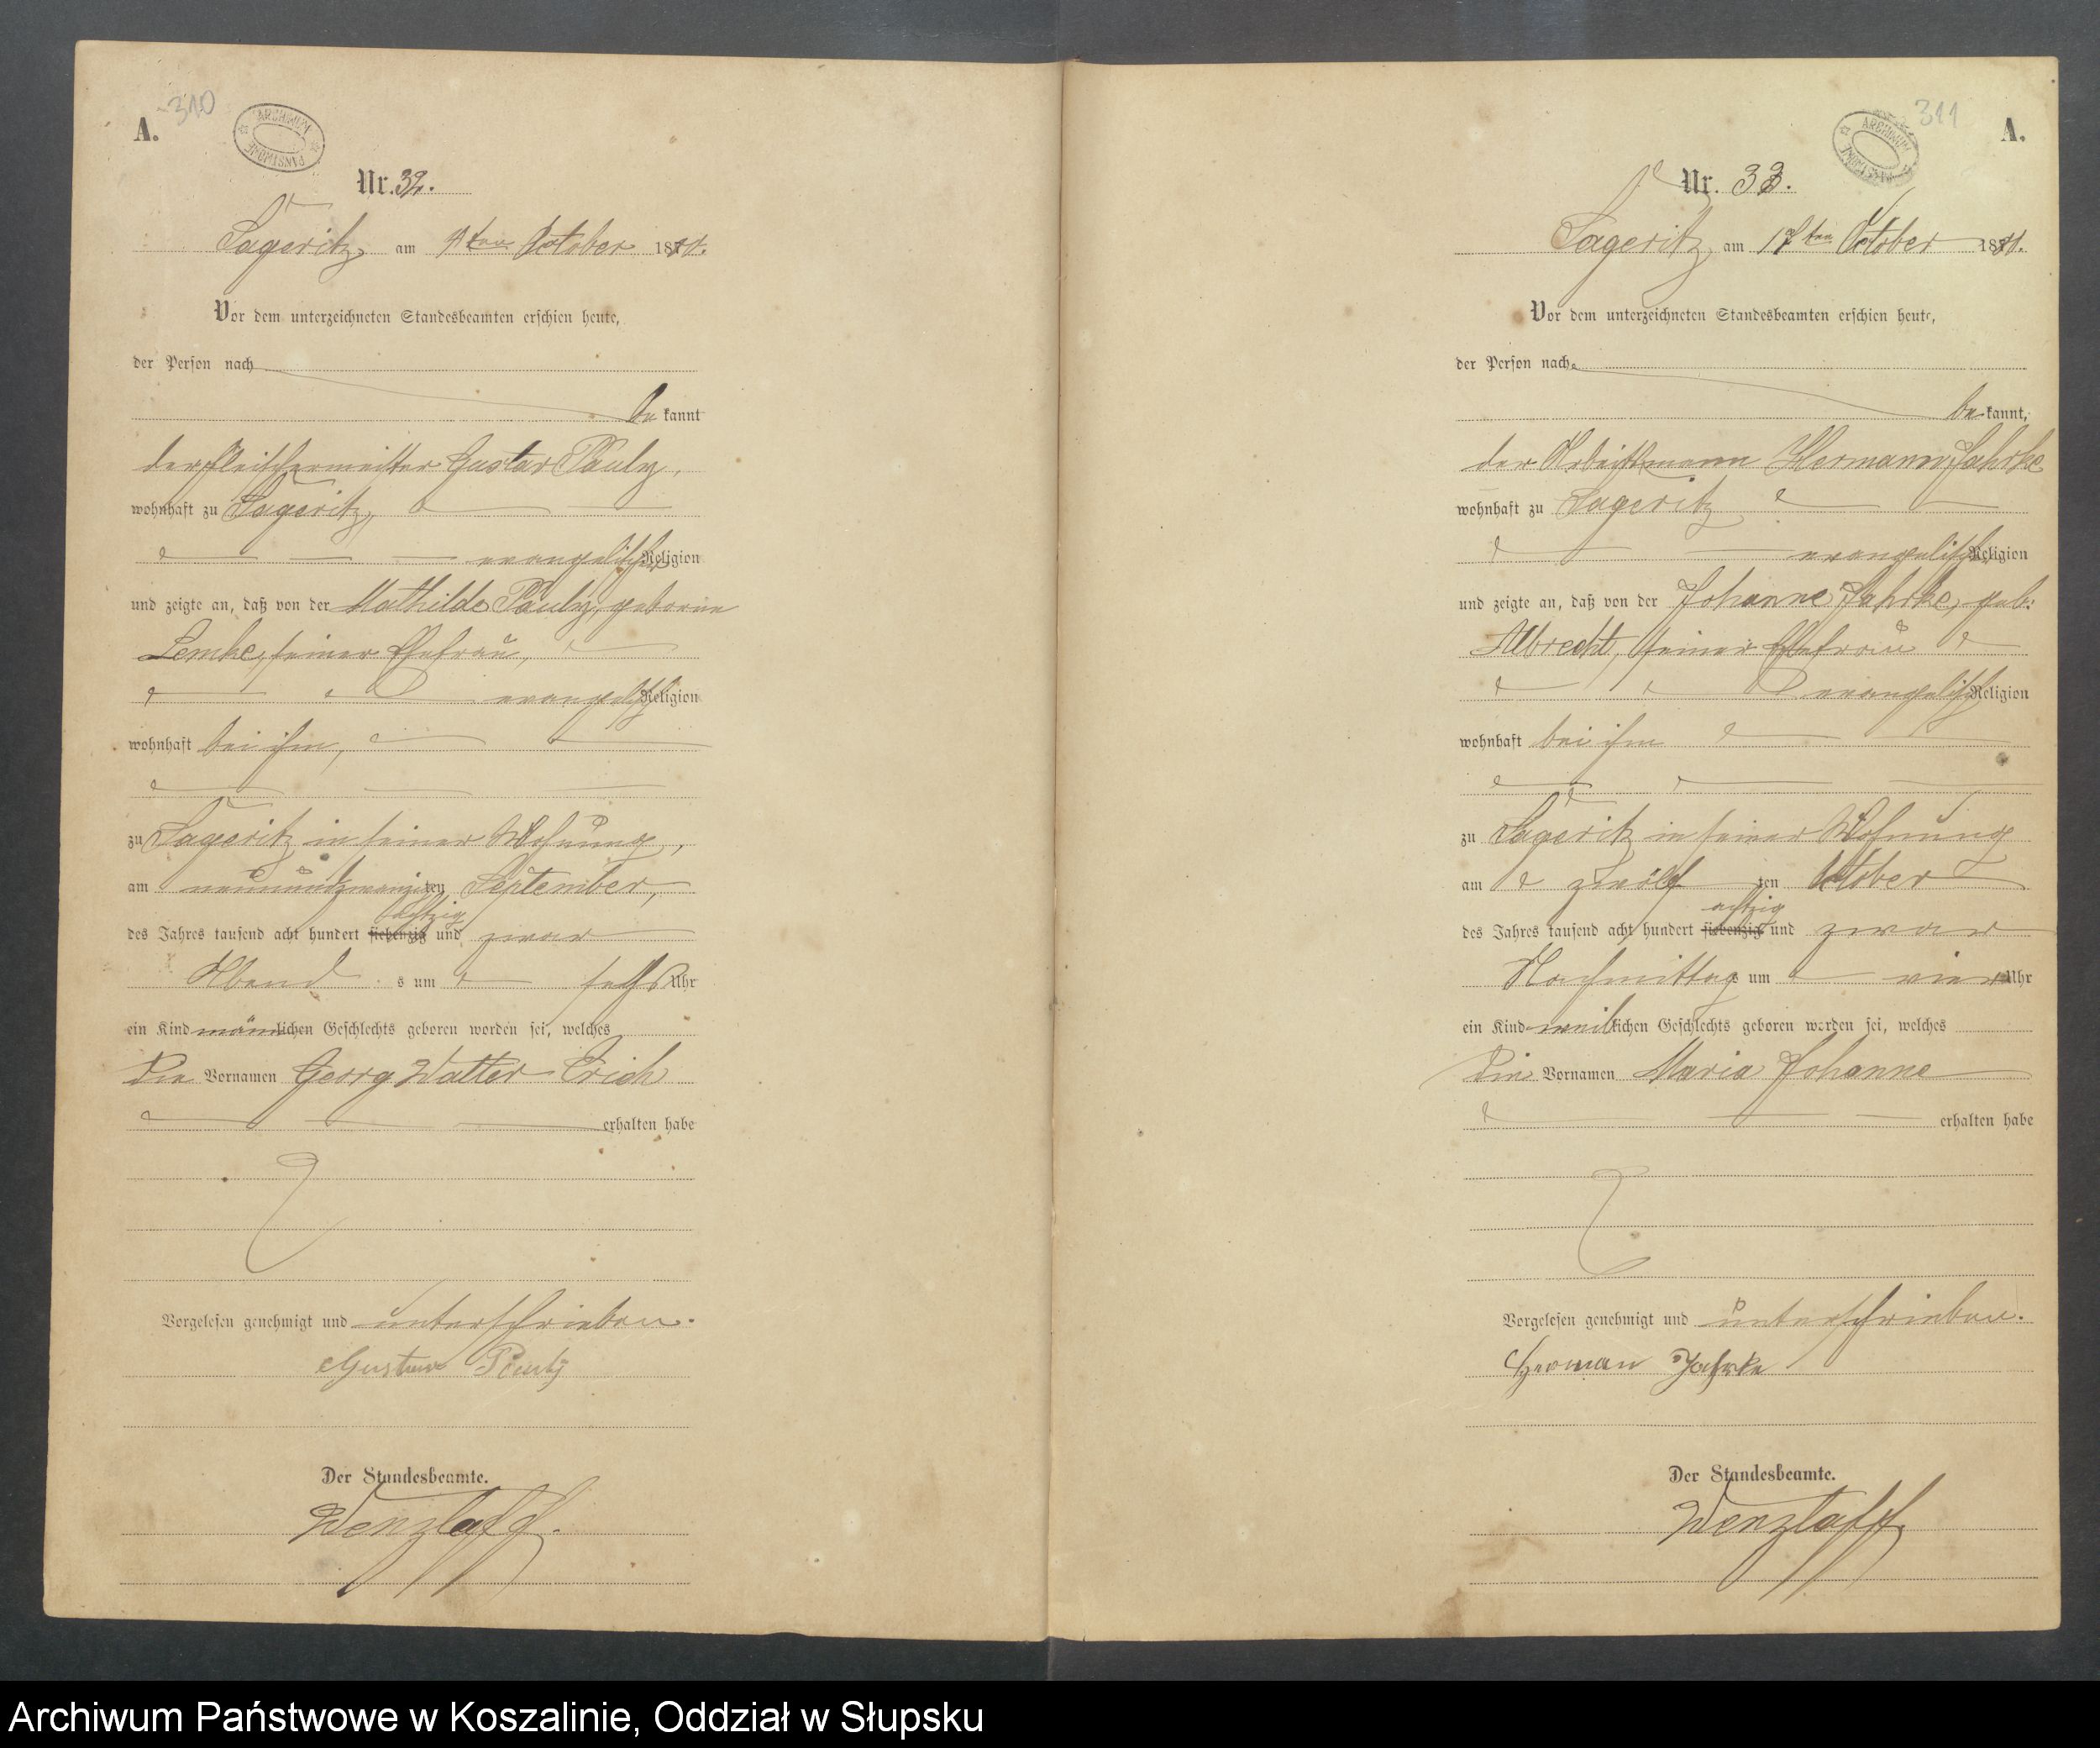 A.
310
ARCHIWUM PAŃSTWOWE
Nr. 32.
Sageritz, am ten October 188
Vor dem unterzeichneten Standesbeamten erschien heute,
der Person nach
be kannt
der Fleischermeister Gustav Pauly,
wohnhaft zu Sageritz,
evangelischer Religion
und zeigte an, daß von der Mathilde Pauly, geborene
Lemke, seiner Ehefrau,
evangelisch Religion
wohnhaft bei ihm,
zu Sageritz in seiner Wohnung,
am neunundzwanzigten September,
achtzig
des Jahres tausend acht hundert siebenzig und zwar
Abend s um sechs Uhr
ein Kind männlichen Geschlechts geboren worden sei, welches
die Vornamen Georg Walter Erich
erhalten habe
Vorgelesen genehmigt und unterschrieben.
Gustav Pauly
Der Standesbeamte.
Wenzlaff.
311
A.
ARCHIWUM PAŃSTWOWE
Nr. 33.
Sageritz, am 17ten October 188
Vor dem unterzeichneten Standesbeamten erschien heute,
der Person nach
be kannt,
der Arbeitsmann Hermann Jahrke
wohnhaft zu Sageritz
evangelischer Religion
und zeigte an, daß von der Johanne Jahrke, geb:
Albrecht, seiner Ehefrau
evangelisch Religion
wohnhaft bei ihm
zu Sageritz in seiner Wohnung
am zwölf ten October
achtzig
des Jahres tausend acht hundert siebenzig und zwar
Nachmittags um vier Uhr
ein Kind weiblichen Geschlechts geboren worden sei, welches
die Vornamen Maria Johanne
erhalten habe
Vorgelesen genehmigt und unterschrieben.
Herman Jahrke
Der Standesbeamte.
Wenzlaff.
Archiwum Państwowe w Koszalinie, Oddział w Słupsku